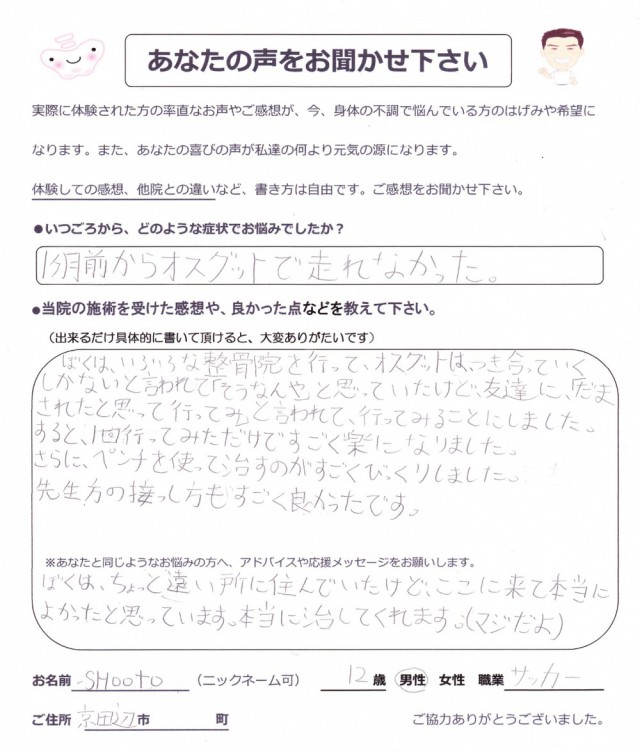 あなたの声をお聞かせ下さい
実際に体験された方の率直なお声やご感想が、今、身体の不調で悩んでいる方のはげみや希望に
なります。また、あなたの喜びの声が私達の何より元気の源になります。
体験しての感想、他院との違いなど、書き方は自由です。ご感想をお聞かせ下さい。
●いつごろから、どのような症状でお悩みでしたか？
1ヶ月前からオスグットで走れなかった。
●当院の施術を受けた感想や、良かった点などを教えて下さい。
（出来るだけ具体的に書いて頂けると、大変ありがたいです）
ぼくは、いろいろな整骨院を行って、オスグットは、つき合っていく
しかないと言われて「そうなんや」と思っていたけど、友達に、「だま
されたと思って行ってみ」と言われて、行ってみることにしました。
すると、1回行ってみただけですごく楽になりました。
さらに、ペンチを使って治すのがすごくびっくりしました。
先生方の接っし方もすごく良かったです。
※あなたと同じようなお悩みの方へ、アドバイスや応援メッセージをお願いします。
ぼくは、ちょっと遠い所に住んでいたけど、ここに来て本当に
よかったと思っています。本当に治してくれます。(マジだよ)
お名前 SHOOTO （ニックネーム可） 12歳 男性 女性 職業 サッカー
ご住所 京田辺市 町 ご協力ありがとうございました。